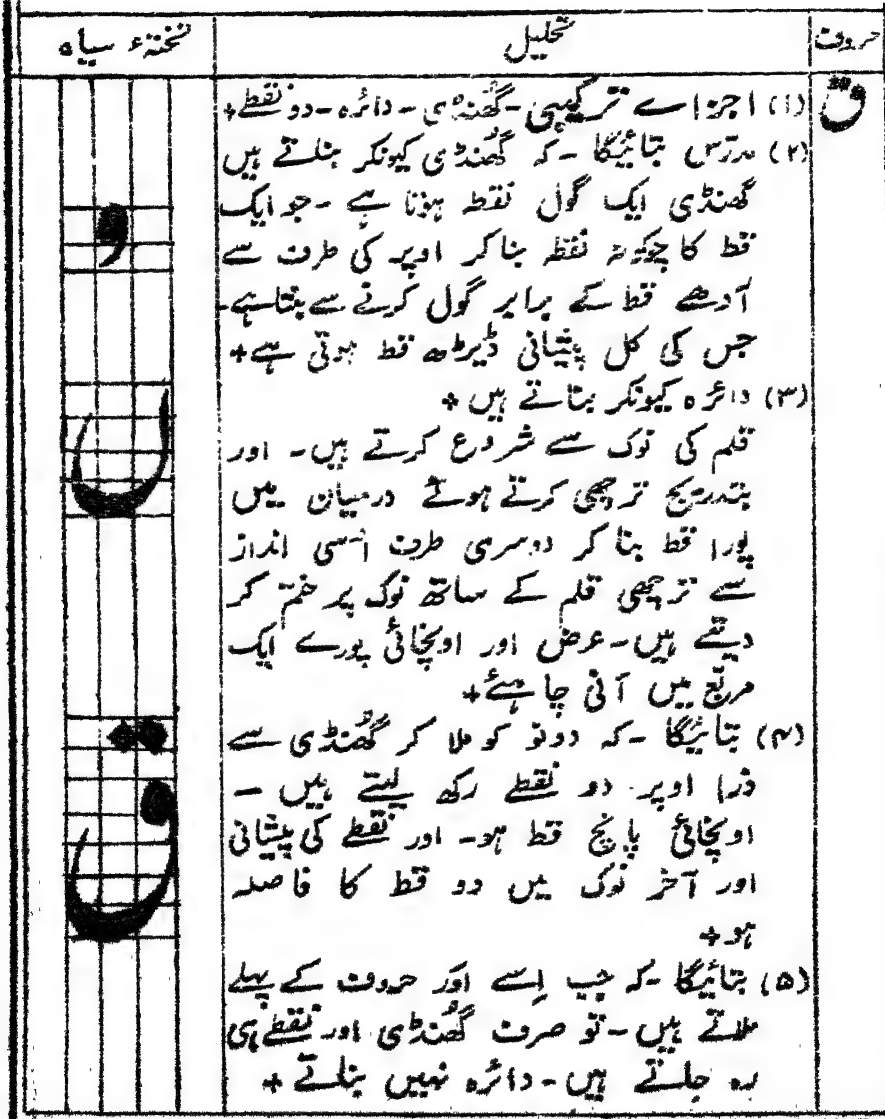 حروف تحلیل تختۂ سیاہ
ق (۱) اجزاے ترکیبی - گھُنڈی - دائرہ - دو نقطے+
(۲) مدرّس بتائیگا - کہ گھُنڈی کیونکر بناتے ہیں
گھنڈی ایک گول نقطہ ہوتا ہے - جو ایک
قط کا چوکور نقطہ بنا کر اوپر کی طرف سے
آدھے قط کے برابر گول کرنے سے بنتا ہے -
جس کی کل پیشانی ڈیڑھ قط ہوتی ہے+
(۳) دائرہ کیونکر بناتے ہیں+
قلم کی نوک سے شروع کرتے ہیں - اور
بتدریج ترچھی کرتے ہوئے درمیان میں
پورا قط بنا کر دوسری طرف اُسی انداز
سے ترچھی قلم کے ساتھ نوک پر ختم کر
دیتے ہیں - عرض اور اونچائی پورے ایک
مربّع میں آنی چاہئے+
(۴) بتائیگا - کہ دونو کو ملا کر گھُنڈی سے
ذرا اوپر دو نقطے رکھ لیتے ہیں -
اونچائی پانچ قط ہو - اور نقطے کی پیشانی
اور آخر نوک میں دو قط کا فاصلہ
ہو+
(۵) بتائیگا - کہ جب اِسے اَور حروف کے پہلے
ملاتے ہیں - تو صرف گھُنڈی اور نقطے ہی
رہ جاتے ہیں - دائرہ نہیں بناتے+
و
ں
ق